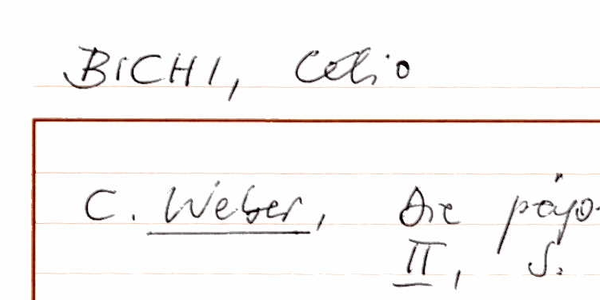 BICHI, Celio
C. Weber, Die päps
II, S.